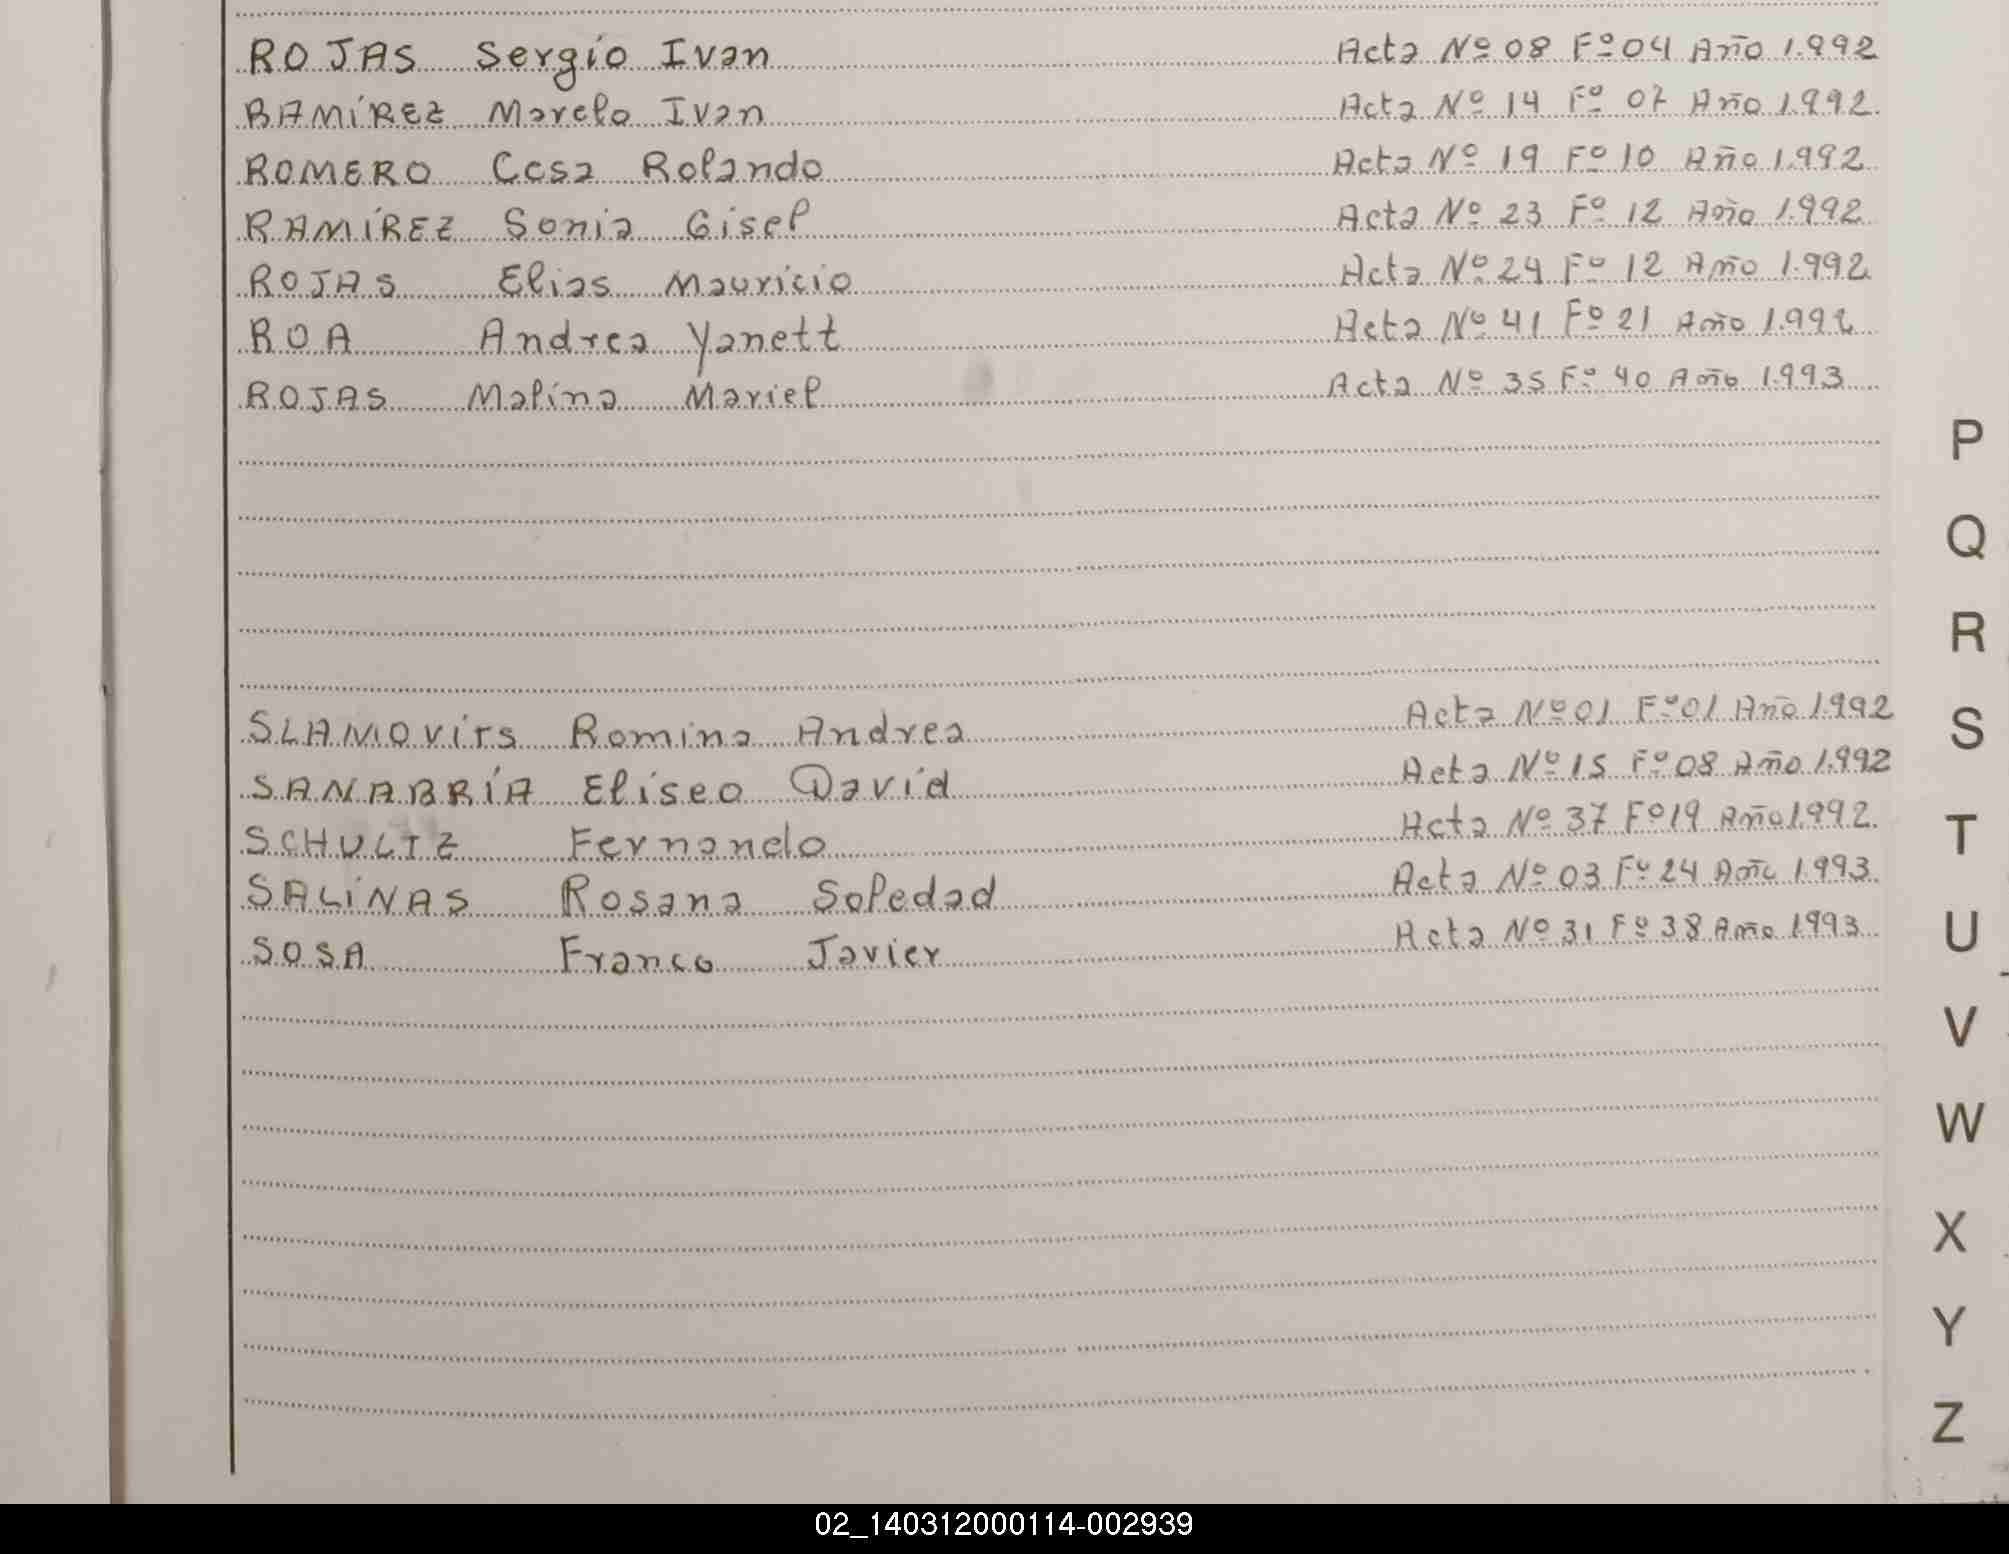 ROJAS Sergio Ivan Acta Nº 08 Fº 04 Año 1.992
RAMÍREZ Marelo Ivan Acta Nº 14 Fº 07 Año 1.992
ROMERO Cesa Rolando Acta Nº 19 Fº 10 Año 1.992
RAMÍREZ Sonia Gisel Acta Nº 23 Fº 12 Año 1.992
ROJAS Elias Mauricio Acta Nº 24 Fº 12 Año 1.992
ROA Andrea Yanett Acta Nº 41 Fº 21 Año 1.992
ROJAS Malina Mariel Acta Nº 35 Fº 40 Año 1.993
P
Q
R
SLAMOVITS Romina Andrea Acta Nº 01 Fº 01 Año 1.992
S
SANABRÍA Eliseo David Acta Nº 15 Fº 08 Año 1.992
SCHULTZ Fernando Acta Nº 37 Fº 19 Año 1.992
T
SALINAS Rosana Soledad Acta Nº 03 Fº 24 Año 1.993
SOSA Franco Javier Acta Nº 31 Fº 38 Año 1.993
U
V
W
X
Y
Z
02_140312000114-002939